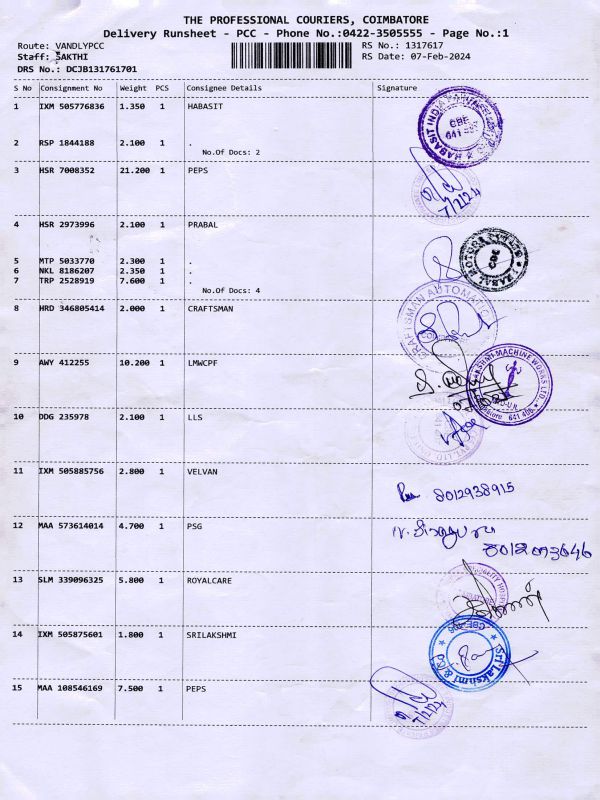 THE PROFESSIONAL COURIERS, COIMBATORE
Delivery Runsheet - PCC - Phone No.:0422-3505555 - Page No.:1
Route: VANDLYPCC RS No.: 1317617
Staff: SAKTHI RS Date: 07-Feb-2024
DRS No.: DCJB131761701
S No Consignment No Weight PCS Consignee Details Signature
1 IXM 505776836 1.350 1 HABASIT
HABASIT INDIA CBE 641
2 RSP 1844188 2.100 1 .
No.Of Docs: 2
3 HSR 7008352 21.200 1 PEPS
7/2/24
4 HSR 2973996 2.100 1 PRABAL
5 MTP 5033770 2.300 1 .
6 NKL 8186207 2.350 1 .
7 TRP 2528919 7.600 1 .
No.Of Docs: 4
8 HRD 346805414 2.000 1 CRAFTSMAN
CRAFTSMAN AUTOMATIC
9 AWY 412255 10.200 1 LMWCPF
LAKSHMI MACHINE WORKS LTD. 641 406
10 DDG 235978 2.100 1 LLS
11 IXM 505885756 2.800 1 VELVAN
8012938915
12 MAA 573614014 4.700 1 PSG
13 SLM 339096325 5.800 1 ROYALCARE
14 IXM 505875601 1.800 1 SRILAKSHMI
Sri Lakshmi & Co CBE-406
15 MAA 108546169 7.500 1 PEPS
7/2/24